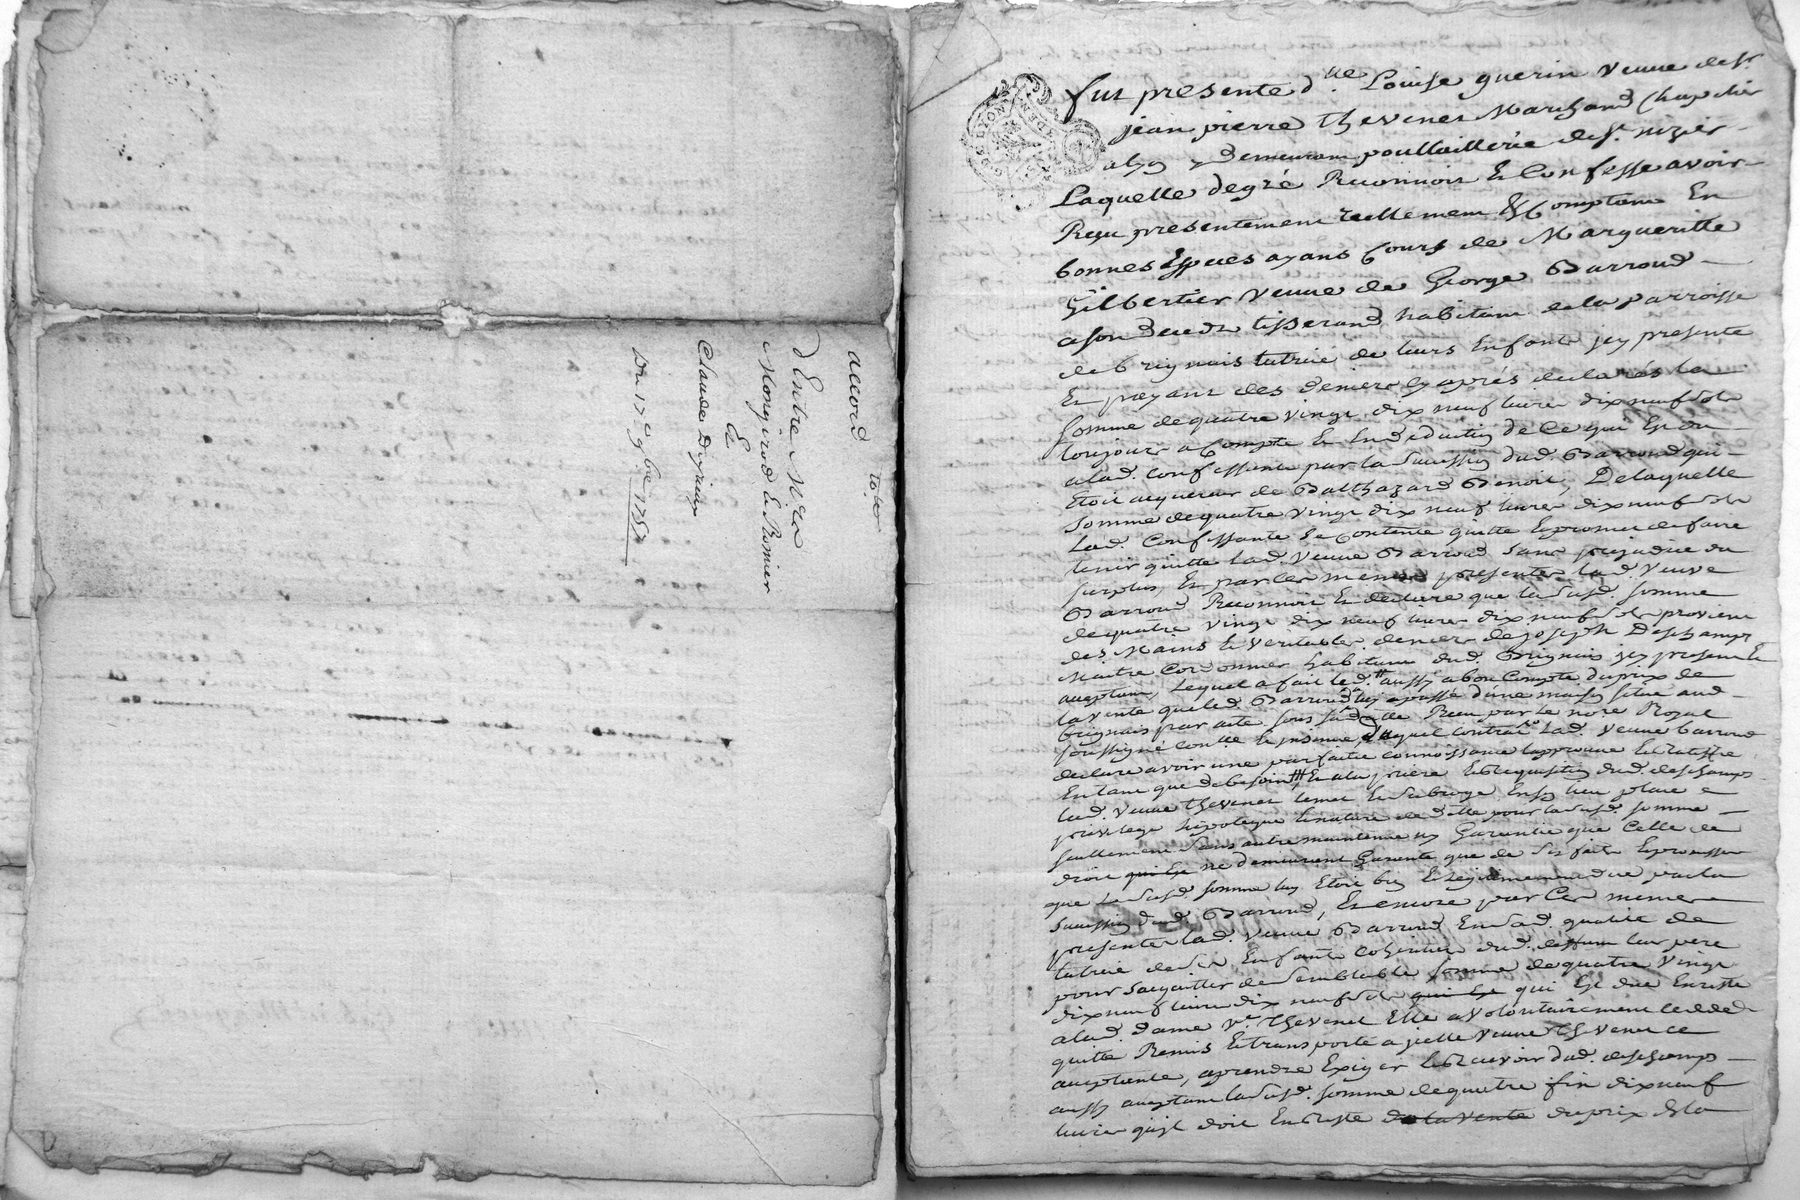 accord
to.er
d'Entre Mre
Mongirod Et Romier
Et
Claude Dejaux
Du 17e 9bre 1751
GEN DE LYON
fut presente d.lle Louise guerin veuve de sr
jean pierre thevenet Marchand Chapelier
a lyon y demeurant poullaillerie de st. nizier
Laquelle de gré Reconnoit Et Confesse avoir
Reçu presentement reellement Et Comptant En
bonnes Especes ayans Cours de Margueritte
Gilbertier veuve de George Barroud
a son deceds tisserand habitant de la parroisse
de brignais tutrice de leurs Enfants jcy presente
Et payant des deniers cy aprés declarés la
somme de quatre vingt dix neuf livres dix neuf sols
toujours a Compte Et En deduction de Ce qui Est du
a lad. confessante par la succession dud. Barroud qui
Etoit acquereur de Balthazard Benoit, De laquelle
somme de quatre vingt dix neuf livres dix neuf sols
Lad. Confessante se Contente quitte Et promet de faire
tenir quitte lad. veuve Barroud sans prejudice du
surplus, Et par Ces memes presentes lad. veuve
Barroud Reconnoit Et declare que la susd. somme
de quatre vingt dix neuf livres dix neuf sols provient
des Mains Et veritables deniers de joseph Deschamps
Maitre Cordonnier habitant dud. Brignais jcy present Et
acceptant, Lequel a fait led. aussy a bon Compte du prix de
la vente que led. Barroud luy a passé d'une maison situé aud.
brignais par acte reçu par le nore Royal
soussigné duquel contrat lad. veuve barroud
declare avoir une parfaitte connoissance l'approuve Et Ratiffie
En tant que de besoin Et a la priere Et Requisition dud. deschamps
lad. veuve thevenet le met Et subroge En son lieu place
privilege hipoteque Et nature de dette pour la susd. somme
seullement sans autre maintenue ny Garentie que Celle de
droit qui Est ne demeurant Garente que de ses faits Et promesses
que la susd. somme luy Etoit bien Et legitimement due par la
succession dud. Barroud, Et encore par Ces memes
presentes lad. veuve Barroud En sad. qualité de
tutrice de ses Enfants Cohéritiers dud. deffunt leur pere
pour s'acquitter de semblable somme de quatre vingt
dix neuf livres dix neuf sols qui Est qui Est due En reste
a lad. dame ve. thevenet Elle a volontairement cedde
quitté Remis Et transporté a jcelle veuve thevenet
acceptante, a prendre Exiger Et Recevoir dud. deschamps
aussy acceptant la susd. somme de quatre vingt dix neuf
livres qu'jl doit En Reste de la vente du prix de la